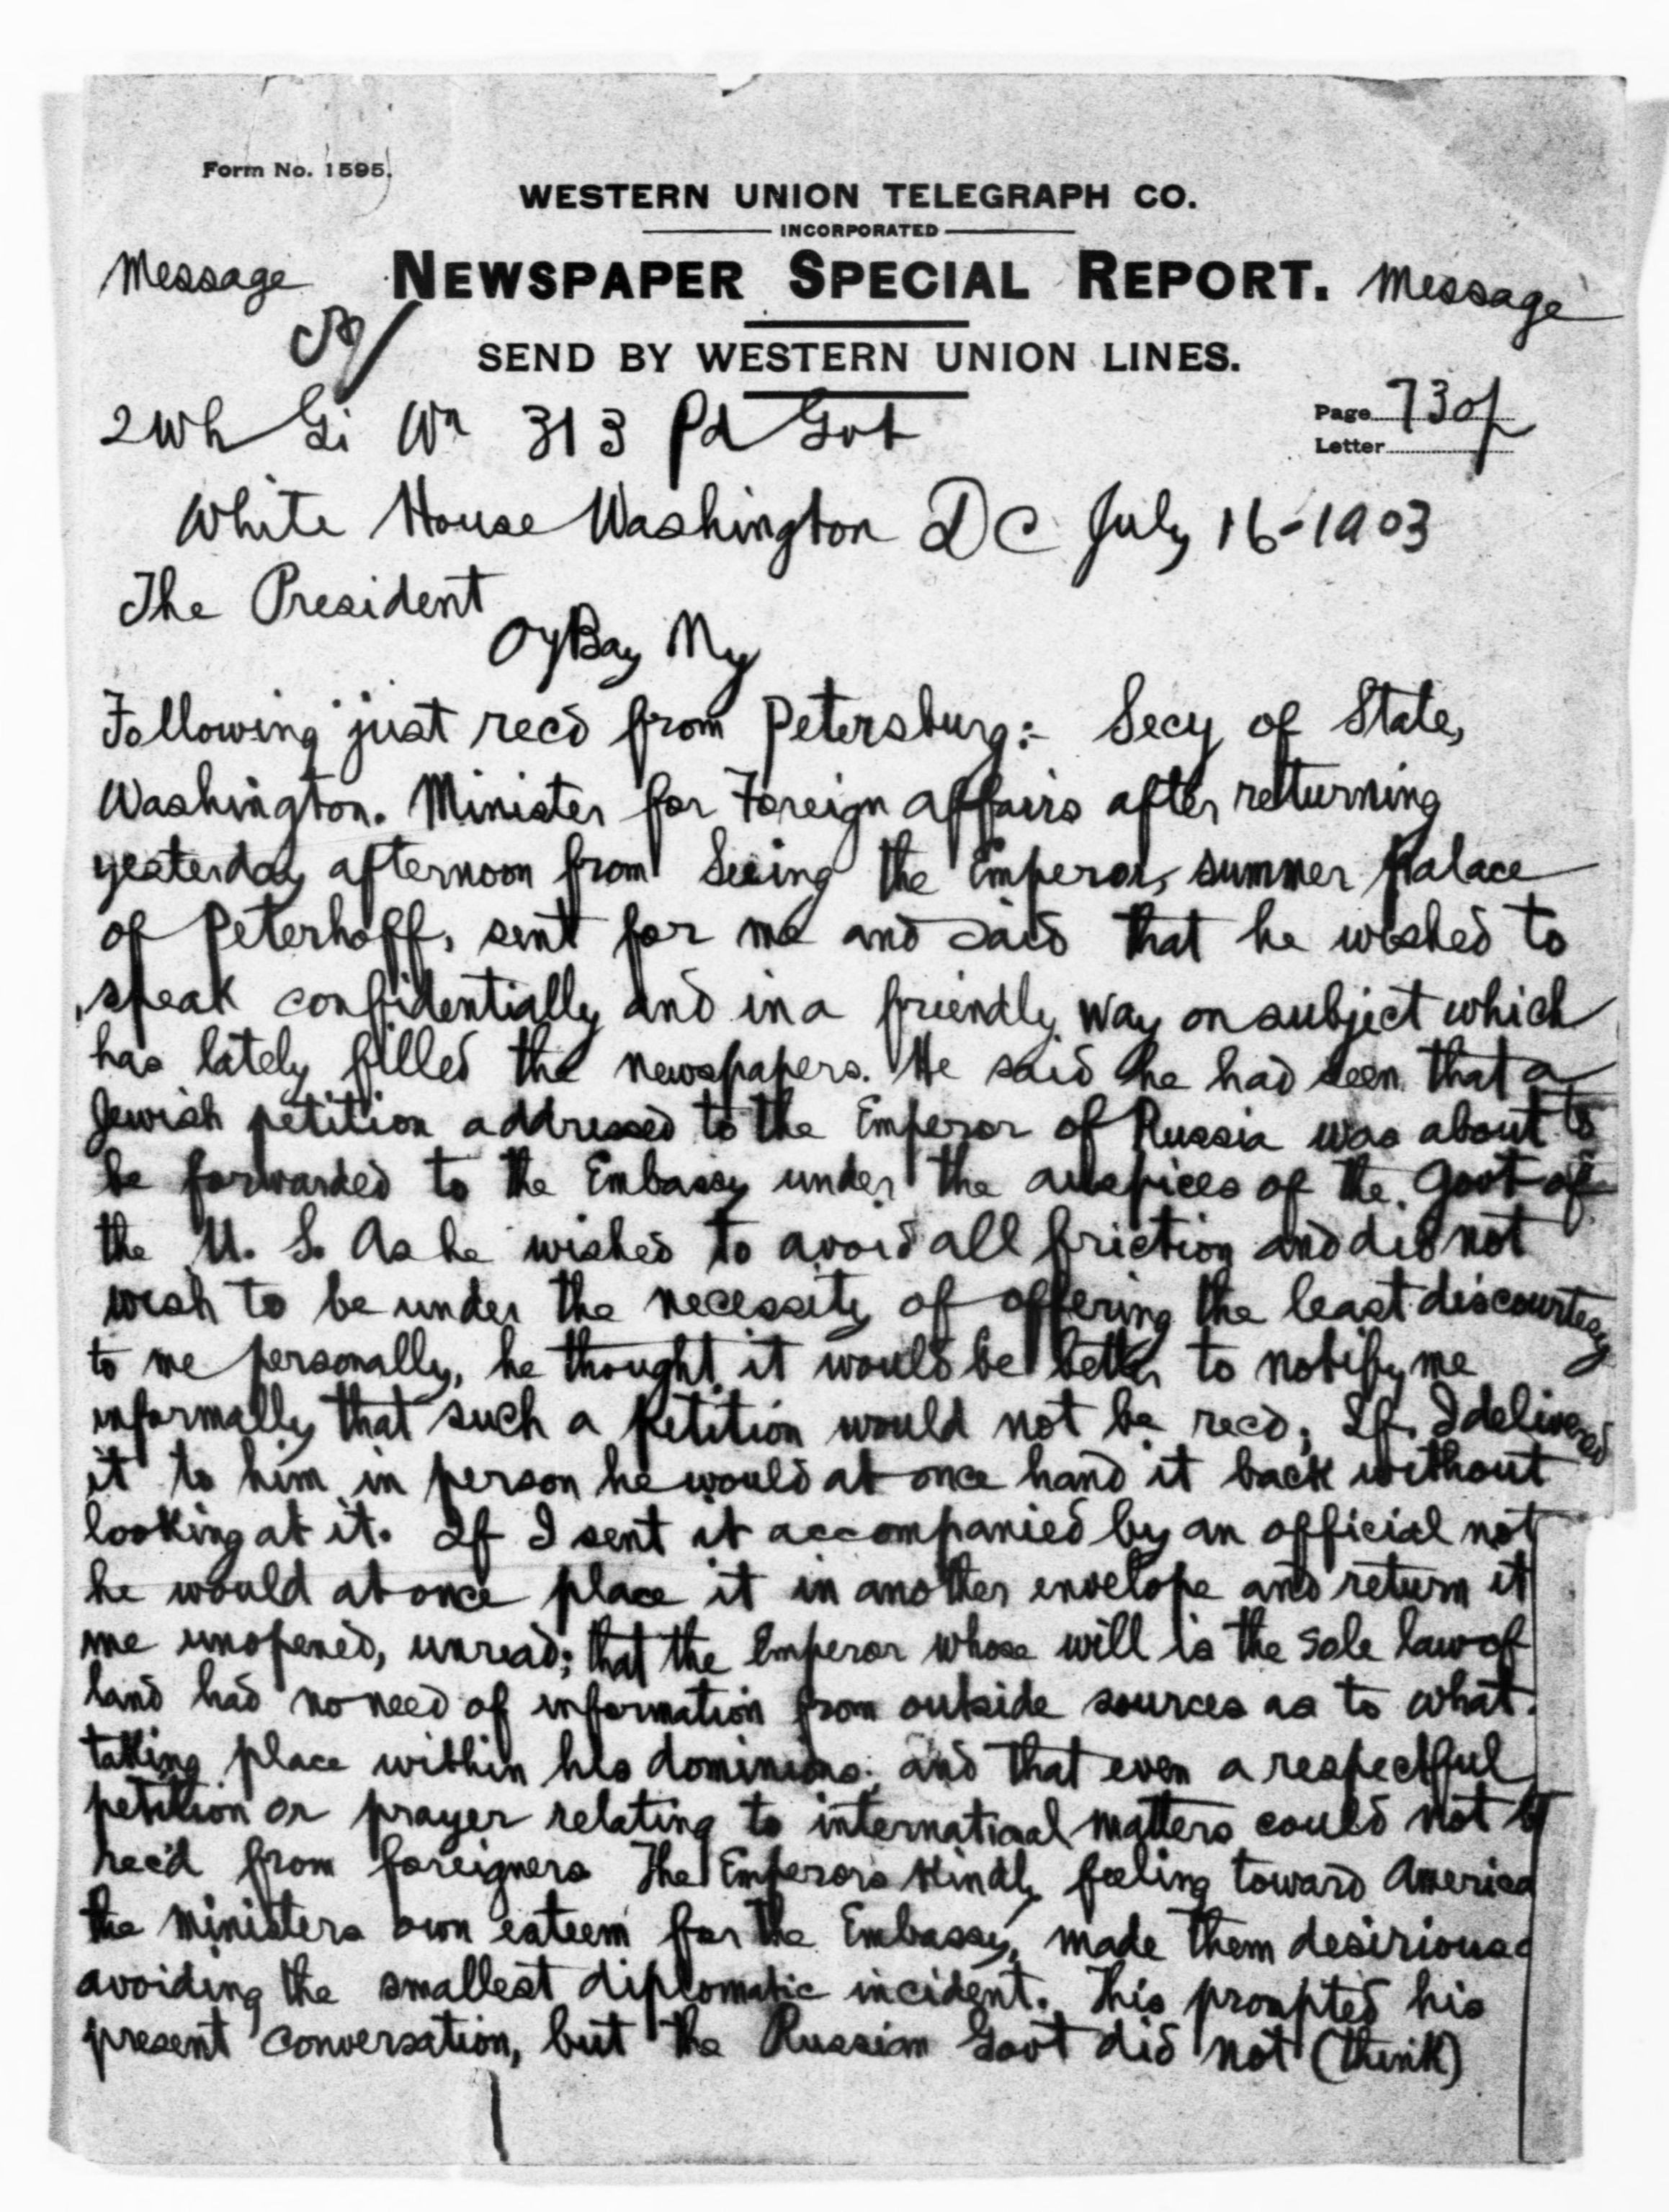 Form No. 1595.
WESTERN UNION TELEGRAPH CO.
INCORPORATED
Message NEWSPAPER SPECIAL REPORT. Message
SEND BY WESTERN UNION LINES.
2 Wh Gi Wn 313 Pd Govt
Page 730p
Letter
White House Washington DC July 16-1903
The President
OyBay Ny
Following just recd from Petersburg:- Secy of State,
Washington. Minister for Foreign affairs after returning
yesterday afternoon from Seeing the Emperor, summer Palace
of Peterhoff, sent for me and said that he wished to
speak confidentially and in a friendly way on subject which
has lately filled the newspapers. He said he had seen that a
Jewish petition addressed to the Emperor of Russia was about to
be forwarded to the Embassy under the auspices of the Govt of
the U. S. As he wished to avoid all friction and did not
wish to be under the necessity of offering the least discourtesy
to me personally, he thought it would be better to notify me
informally that such a petition would not be recd; If I delivered
it to him in person he would at once hand it back without
looking at it. If I sent it accompanied by an official not
he would at once place it in another envelope and return it
me unopened, unread; that the Emperor whose will is the sole law of
land had no need of information from outside sources as to what
taking place within his dominions; and that even a respectful
petition or prayer relating to international matters could not b
rec'd from foreigners The Emperors Kindly feeling toward America
the ministers own esteem for the Embassy, made them desirious
avoiding the smallest diplomatic incident. This prompted his
present conversation, but the Russian Govt did not (think)